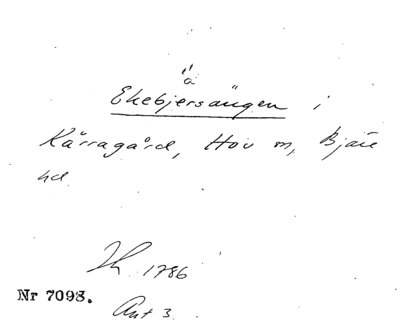 "å
Ekebjersängen i
Kärragård, Hov sn, Bjäre
hd
Nr 7093.
1786
Akt 3